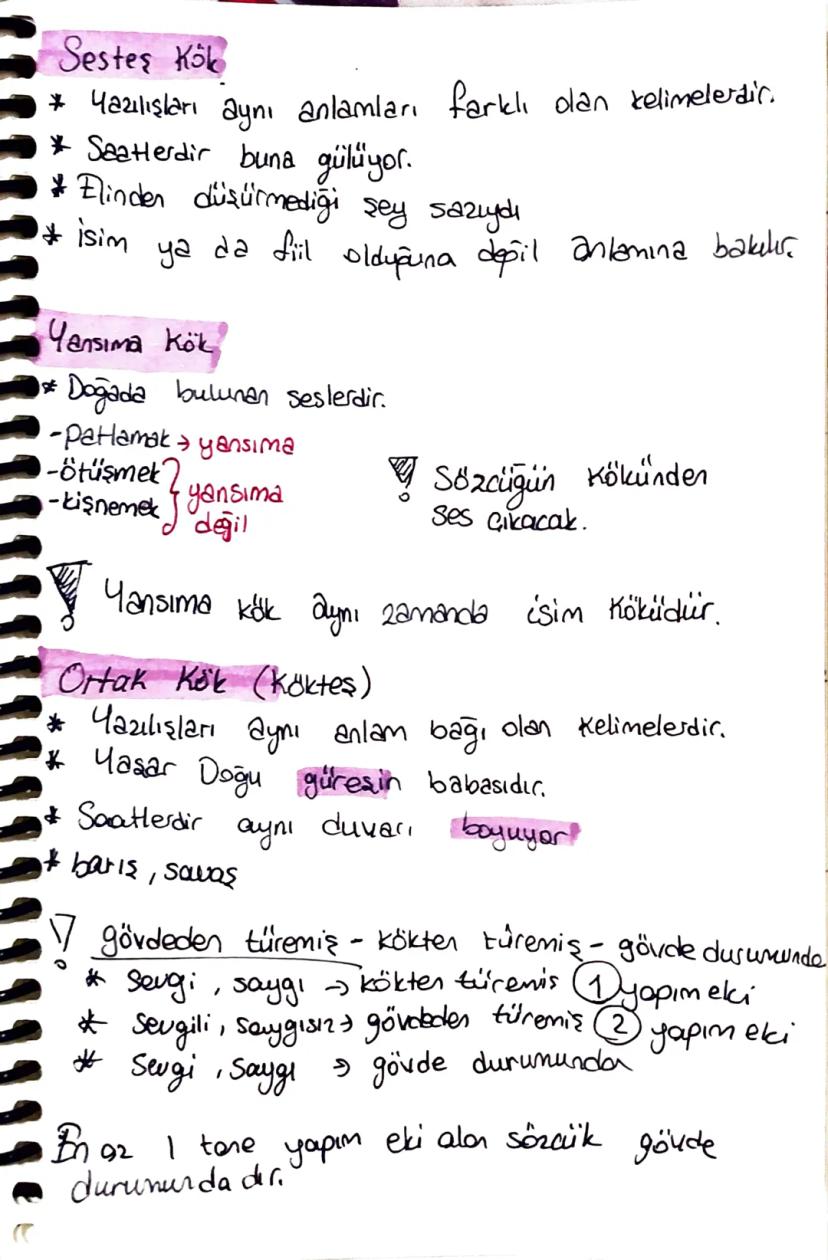 Sesteş Kök
* Yazılışları aynı anlamları farklı olan kelimelerdir.
* Saatlerdir buna gülüyor.
* Elinden düşürmediği şey sazıydı
* isim ya da fiil olduğuna değil anlamına bakılır.
Yansıma Kök
* Doğada bulunan seslerdir.
-patlamak → yansıma
-ötüşmek
-kişnemek } yansıma
değil
! Sözcüğün kökünden
ses çıkacak.
! Yansıma kök aynı zamanda isim köküdür.
Ortak Kök (Kökteş)
* Yazılışları aynı anlam bağı olan kelimelerdir.
* Yaşar Doğu güreşin babasıdır.
* Saatlerdir aynı duvarı boyuyor
* barış, savaş
! gövdeden türemiş - kökten türemiş - gövde durumunda
* sevgi, saygı → kökten türemiş 1 yapım eki
* sevgili, saygısız → gövdeden türemiş 2 yapım eki
* sevgi, saygı → gövde durumundar
En az 1 tane yapım eki alan sözcük gövde
durumundadır.